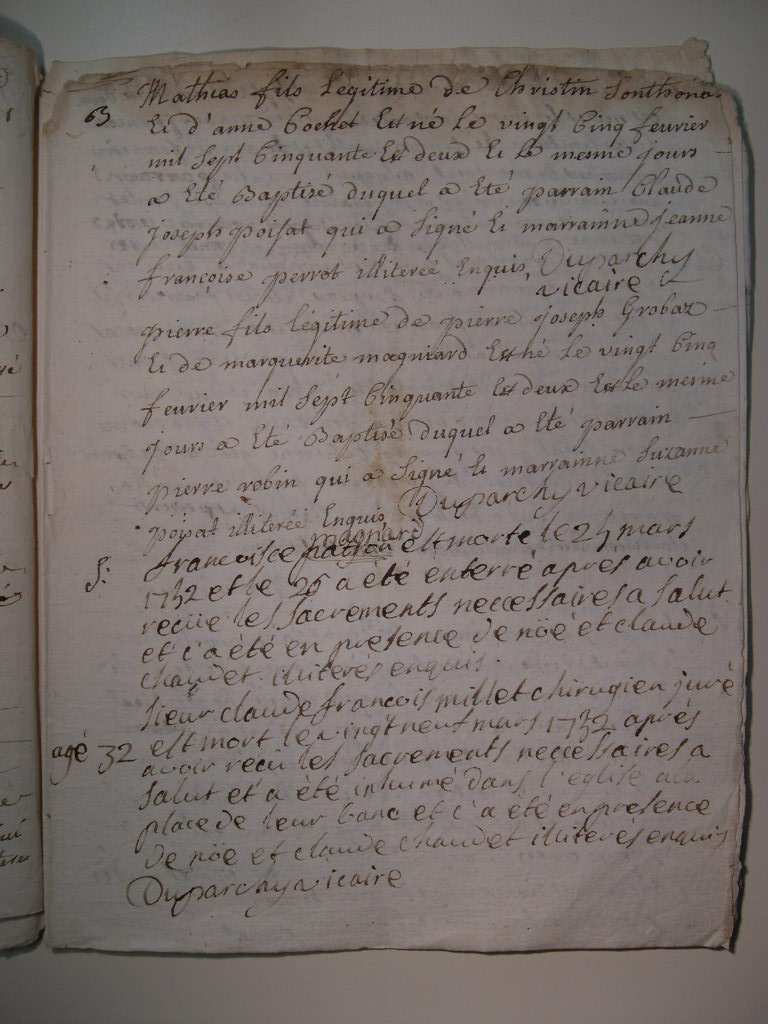 B Mathias fils Légitime de Christin Sonthona
Et d'anne Cochet Est né Le vingt Cinq feurier
mil Sept Cinquante Et deux Et Le mesme jours
a Eté Baptisé duquel a Eté parrain Claude
joseph poisat qui a Signé Et marrainne jeanne
françoise perrot illiterée Enquis Duparchy
vicaire
pierre fils légitime de pierre joseph Grobaz
Et de marguerite magniard Est né Le vingt Cinq
feurier mil Sept Cinquante Et deux Et Le mesme
jours a Eté Baptisé duquel a Eté parrain
pierre robin qui a Signé Et marrainne Suzanne
poisat illiterée Enquis Duparchy vicaire
magnard
S: francoise est morte le 25 mars
1752 et le 26 a été enterré aprés avoir
recüe les sacrements neccessaires a salut
et c'a été en presence de nöe et claude
chaudet illiterés enquis.
sieur claude francois millet chirugien juré
agé 32 est mort le vingt neuf mars 1752 aprés
avoir recu les sacrements neccessaires a
salut et a été inhumé dans l'église a la
place de leur banc et c'a été en presence
de nöe et claude chaudet illiteres enquis
Duparchy vicaire